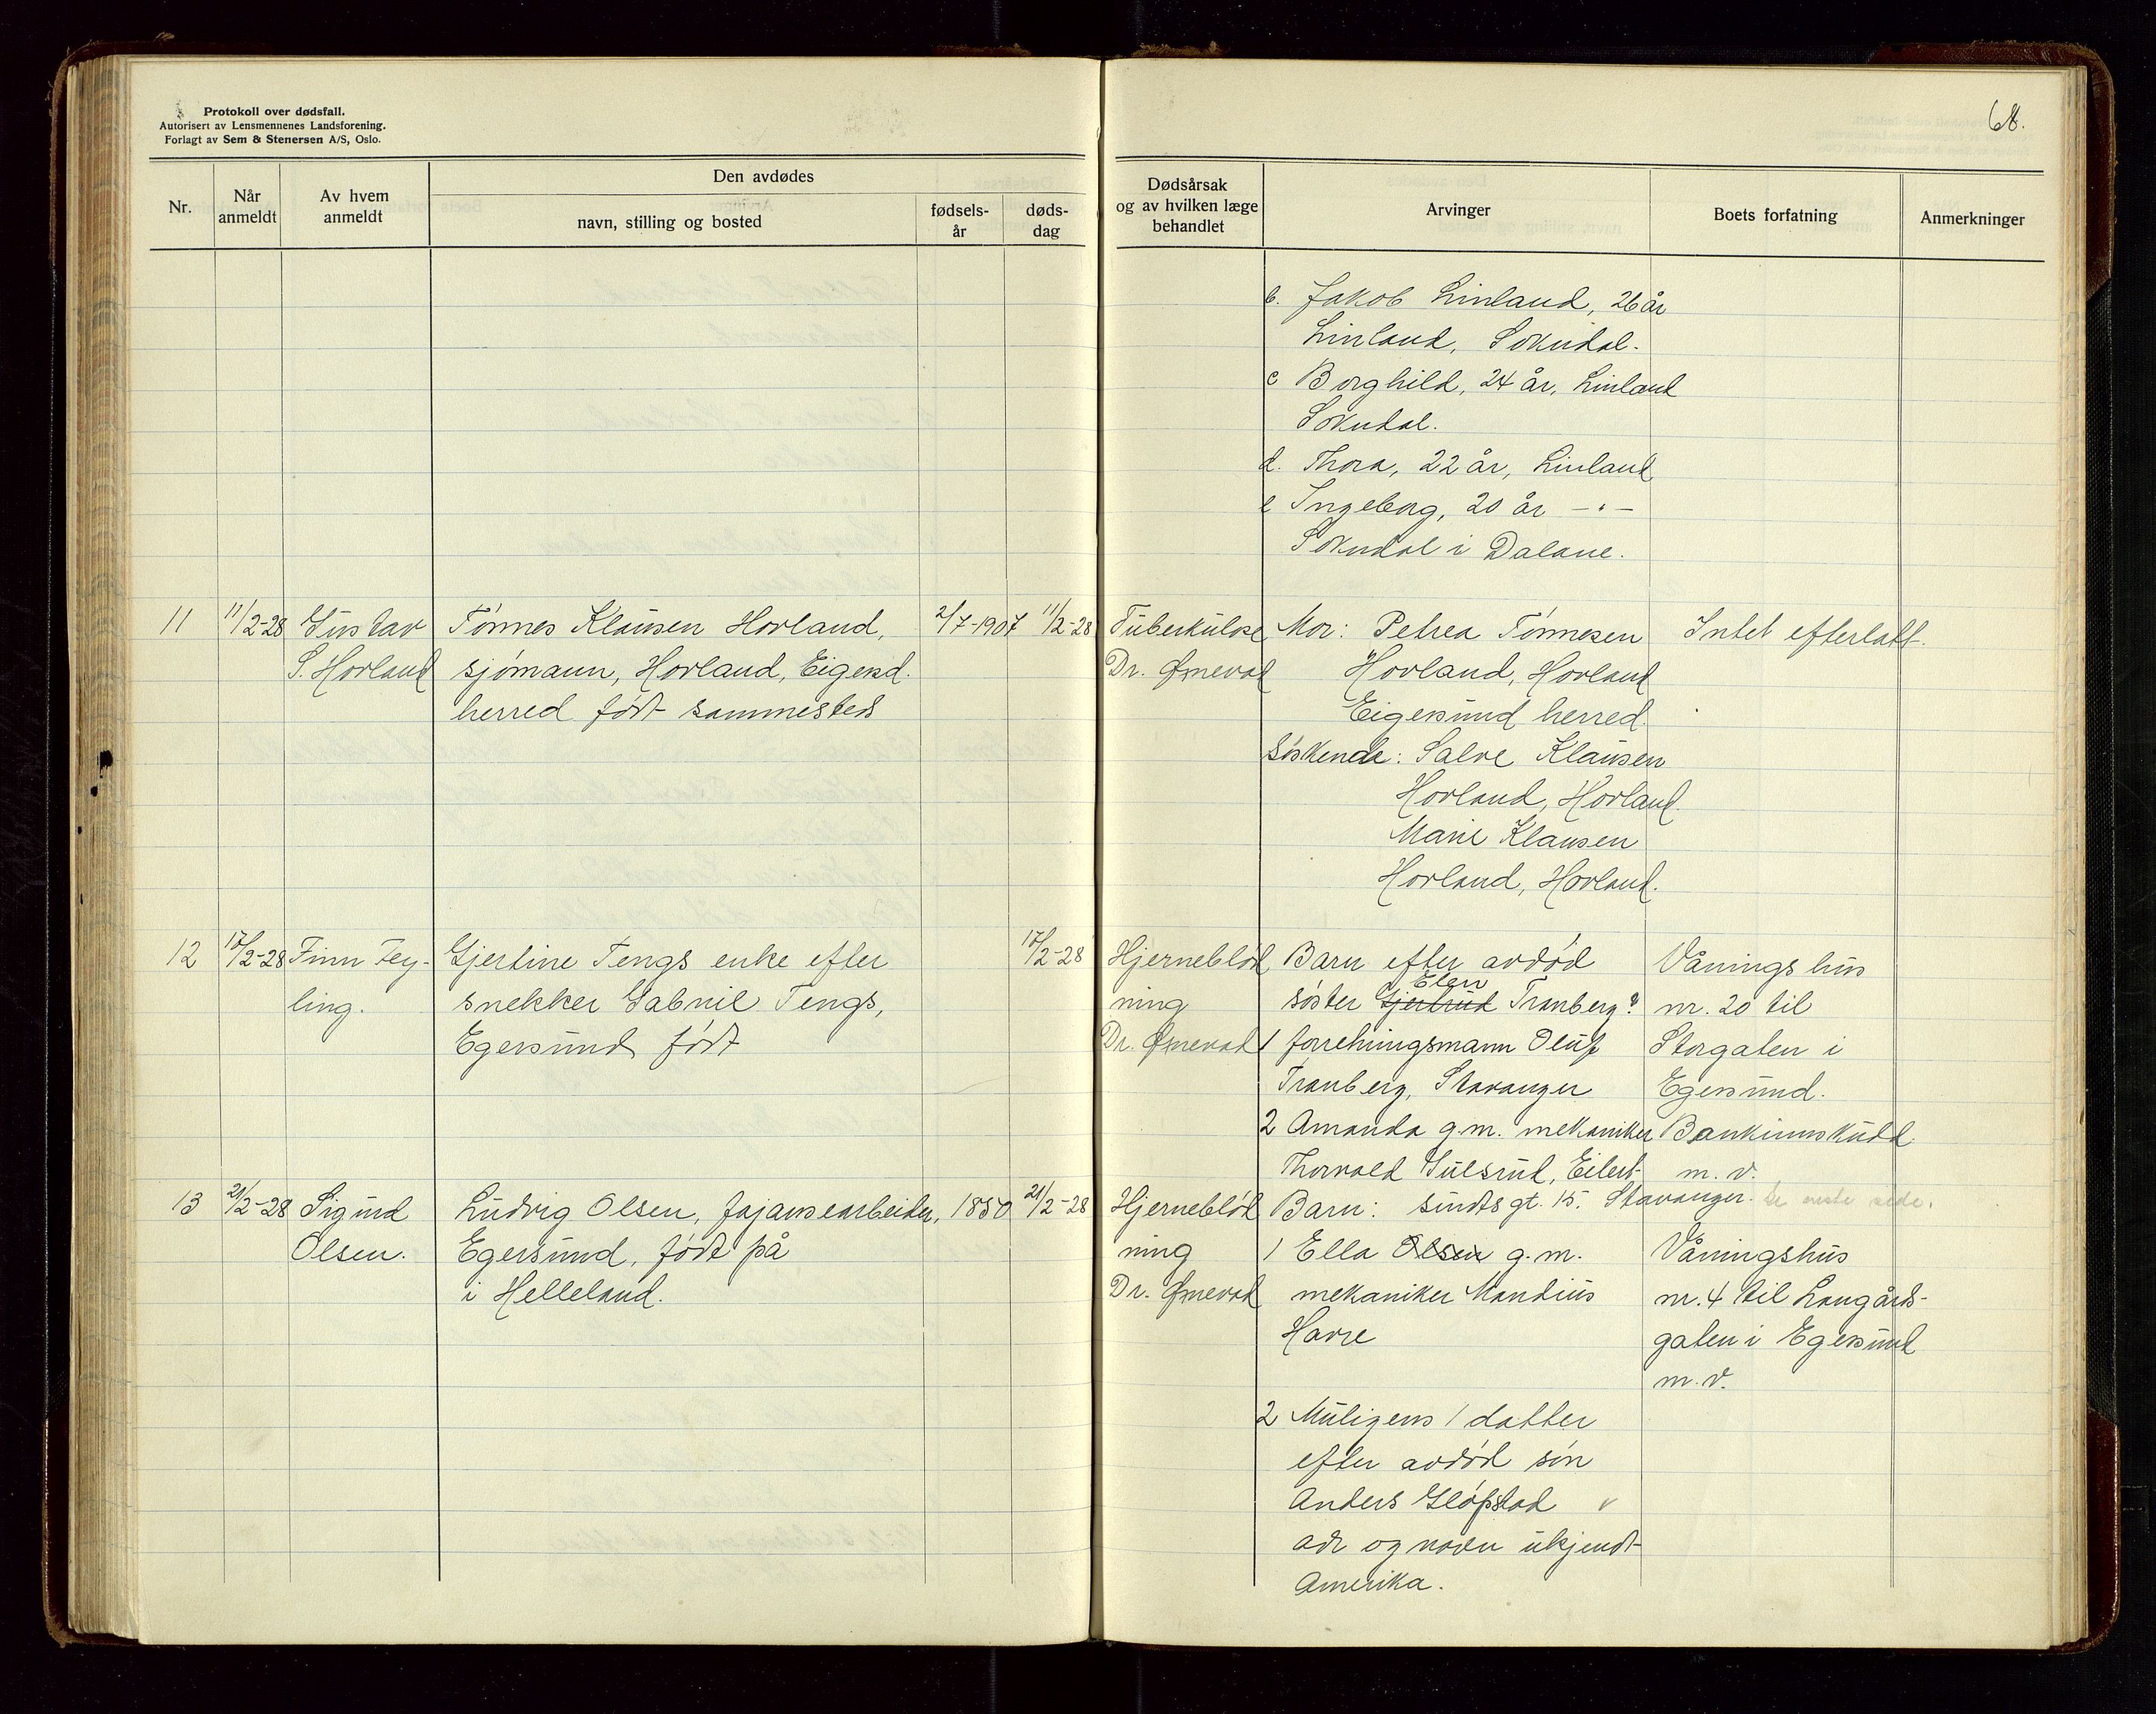 Protokoll over dødsfall.
Autorisert av Lensmennenes Landsforening.
Forlagt av Sem & Stenersen A/S, Oslo.
68.
Nr.
Når anmeldt
Av hvem anmeldt
Den avdødes
navn, stilling og bosted
fødsels-år
døds-dag
Dødsårsak og av hvilken læge behandlet
Arvinger
Boets forfatning
Anmerkninger
b. Jakob Linland, 26 år
Linland, Sokndal.
c Borghild, 24 år, Linland
Sokndal.
d. Thora, 22 år, Linland
e Ingeborg, 20 år -"-
Sokndal i Dalane.
11
11/2-28
Gustav
S. Hovland
Tønnes Klausen Hovland,
sjømann, Hovland, Eigersd.
herred født sammesteds
2/7-1907
11/2-28
Tuberkulose
Dr.
Mor: Petrea Tønnesen
Hovland, Hovland
Eigersund herred.
Søskende: Salve Klausen
Hovland, Hovland.
Marie Klausen
Hovland, Hovland.
Intet efterlatt.
12
17/2-28
Finn Tey-
ling.
Gjertine Tengs enke efter
snekker Gabriel Tengs,
Egersund født
17/2-28
Hjerneblød
ning
Dr.
Barn efter avdød
Elen
søster Gjertrud Tranberg:
1 forretningsmann Oluf
Tranberg, Stavanger
2 Amanda g.m. mekaniker
Thorvald Gulsrud, Eilert
sundts gt. 15. Stavanger.
Våningshus
nr. 20 til
Storgaten i
Egersund.
Bankinnskudd
m. v.
Se neste side.
13
21/2-28
Sigurd
Olsen.
Ludvig Olsen, fajansearbeider,
Egersund, født på
i Helleland.
1850
21/2-28
Hjerneblød
ning
Dr.
Barn:
1 Ella Olsen g.m.
mekaniker Mandius
Havre
2 Muligens 1 datter
efter avdød søn
Anders Gløpstad
adr og navn ukjendt
Amerika.
Våningshus
nr. 4 til Langårds-
gaten i Egersund
m. v.